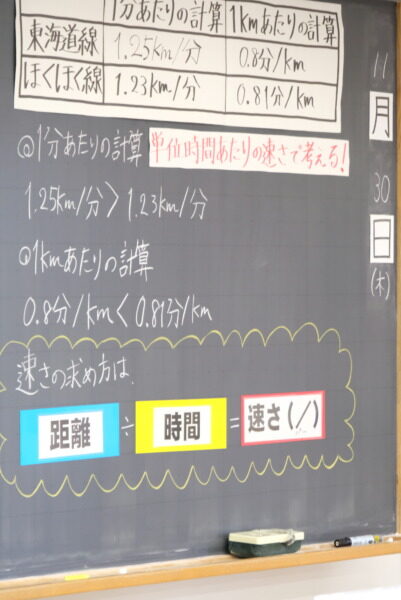 1分あたりの計算 1kmあたりの計算
東海道線 1.25km/分 0.8分/km
ほくほく線 1.23km/分 0.81分/km
11
月
30
日
(木)
◎1分あたりの計算 単位時間あたりの速さで考える!
1.25km/分 > 1.23km/分
◎1kmあたりの計算
0.8分/km < 0.81分/km
速さの求め方は、
距離 ÷ 時間 = 速さ(/)